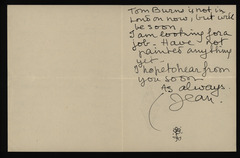 Tom Burns is not in
London now, but will
be soon
I am looking for a
job - Have not
painted anything
yet -
I hope to hear from
you soon
As always
Jean.